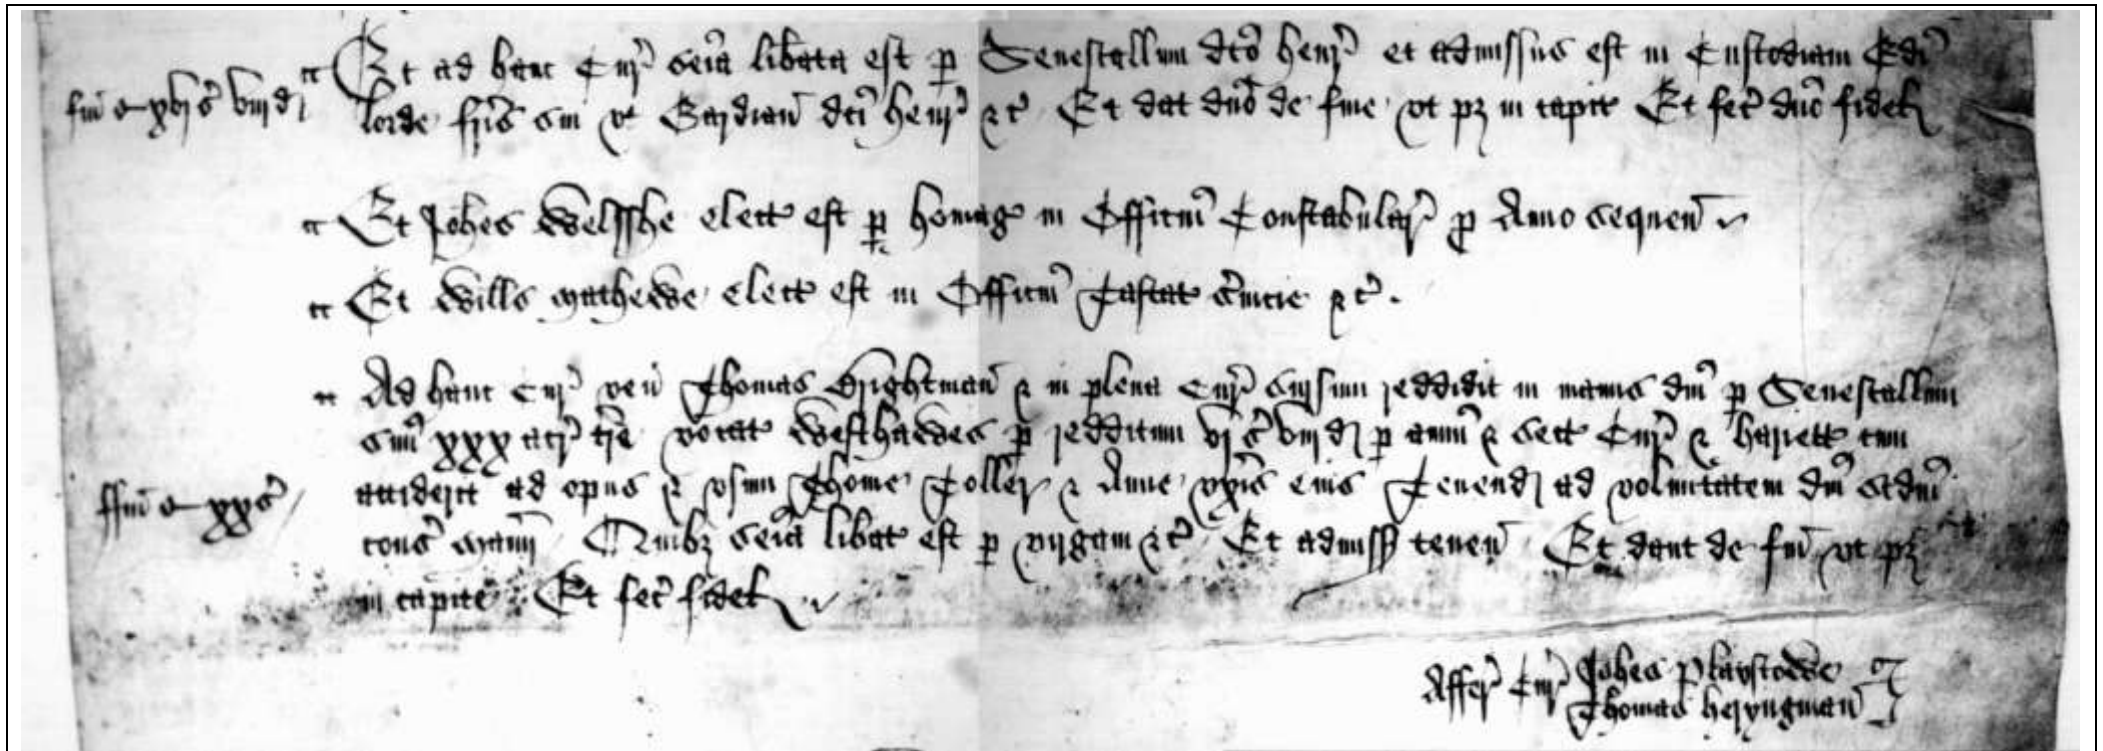 Et ad hanc Cur' sei'a lib'ata est p Senescallum d'co Henr' et admissus est in Custodiam Edi'
fin' xvj s' viij d' lorde fr'is sui vt Gardian' d'ci Henr' &c' Et dat d'no de fine vt p'z in capite Et fec' d'no fidel'
Et Joh'es Welsshe elect' est p homag' in Officiu' Constabular' p Anno sequen'
Et Will's Mathewe elect' est in Officiu' Tastat' s'uicie &c'.
Ad hanc Cur' ven' Thomas Brightman' & in plena Cur' sursum reddidit in manus d'ni p Senescallum
suu' xxx acr' t're vocat' Westhawes p redditum vj s' viij d' p annu' & sect' Cur' & hariett' cum
acciderit ad opus & vsum Thome Coller & Anne vx'is eius Tenend' ad voluntatem d'ni s'cdm'
ffin' xx s' cons' Man'ij Quibz sei'a libat' est p virgam &c' Et admiss' tenen' Et dant de fin' vt p'z
in capite Et fec' fidel'
Affer' Cur' Joh'es Playstowe
Thomas Heryngman